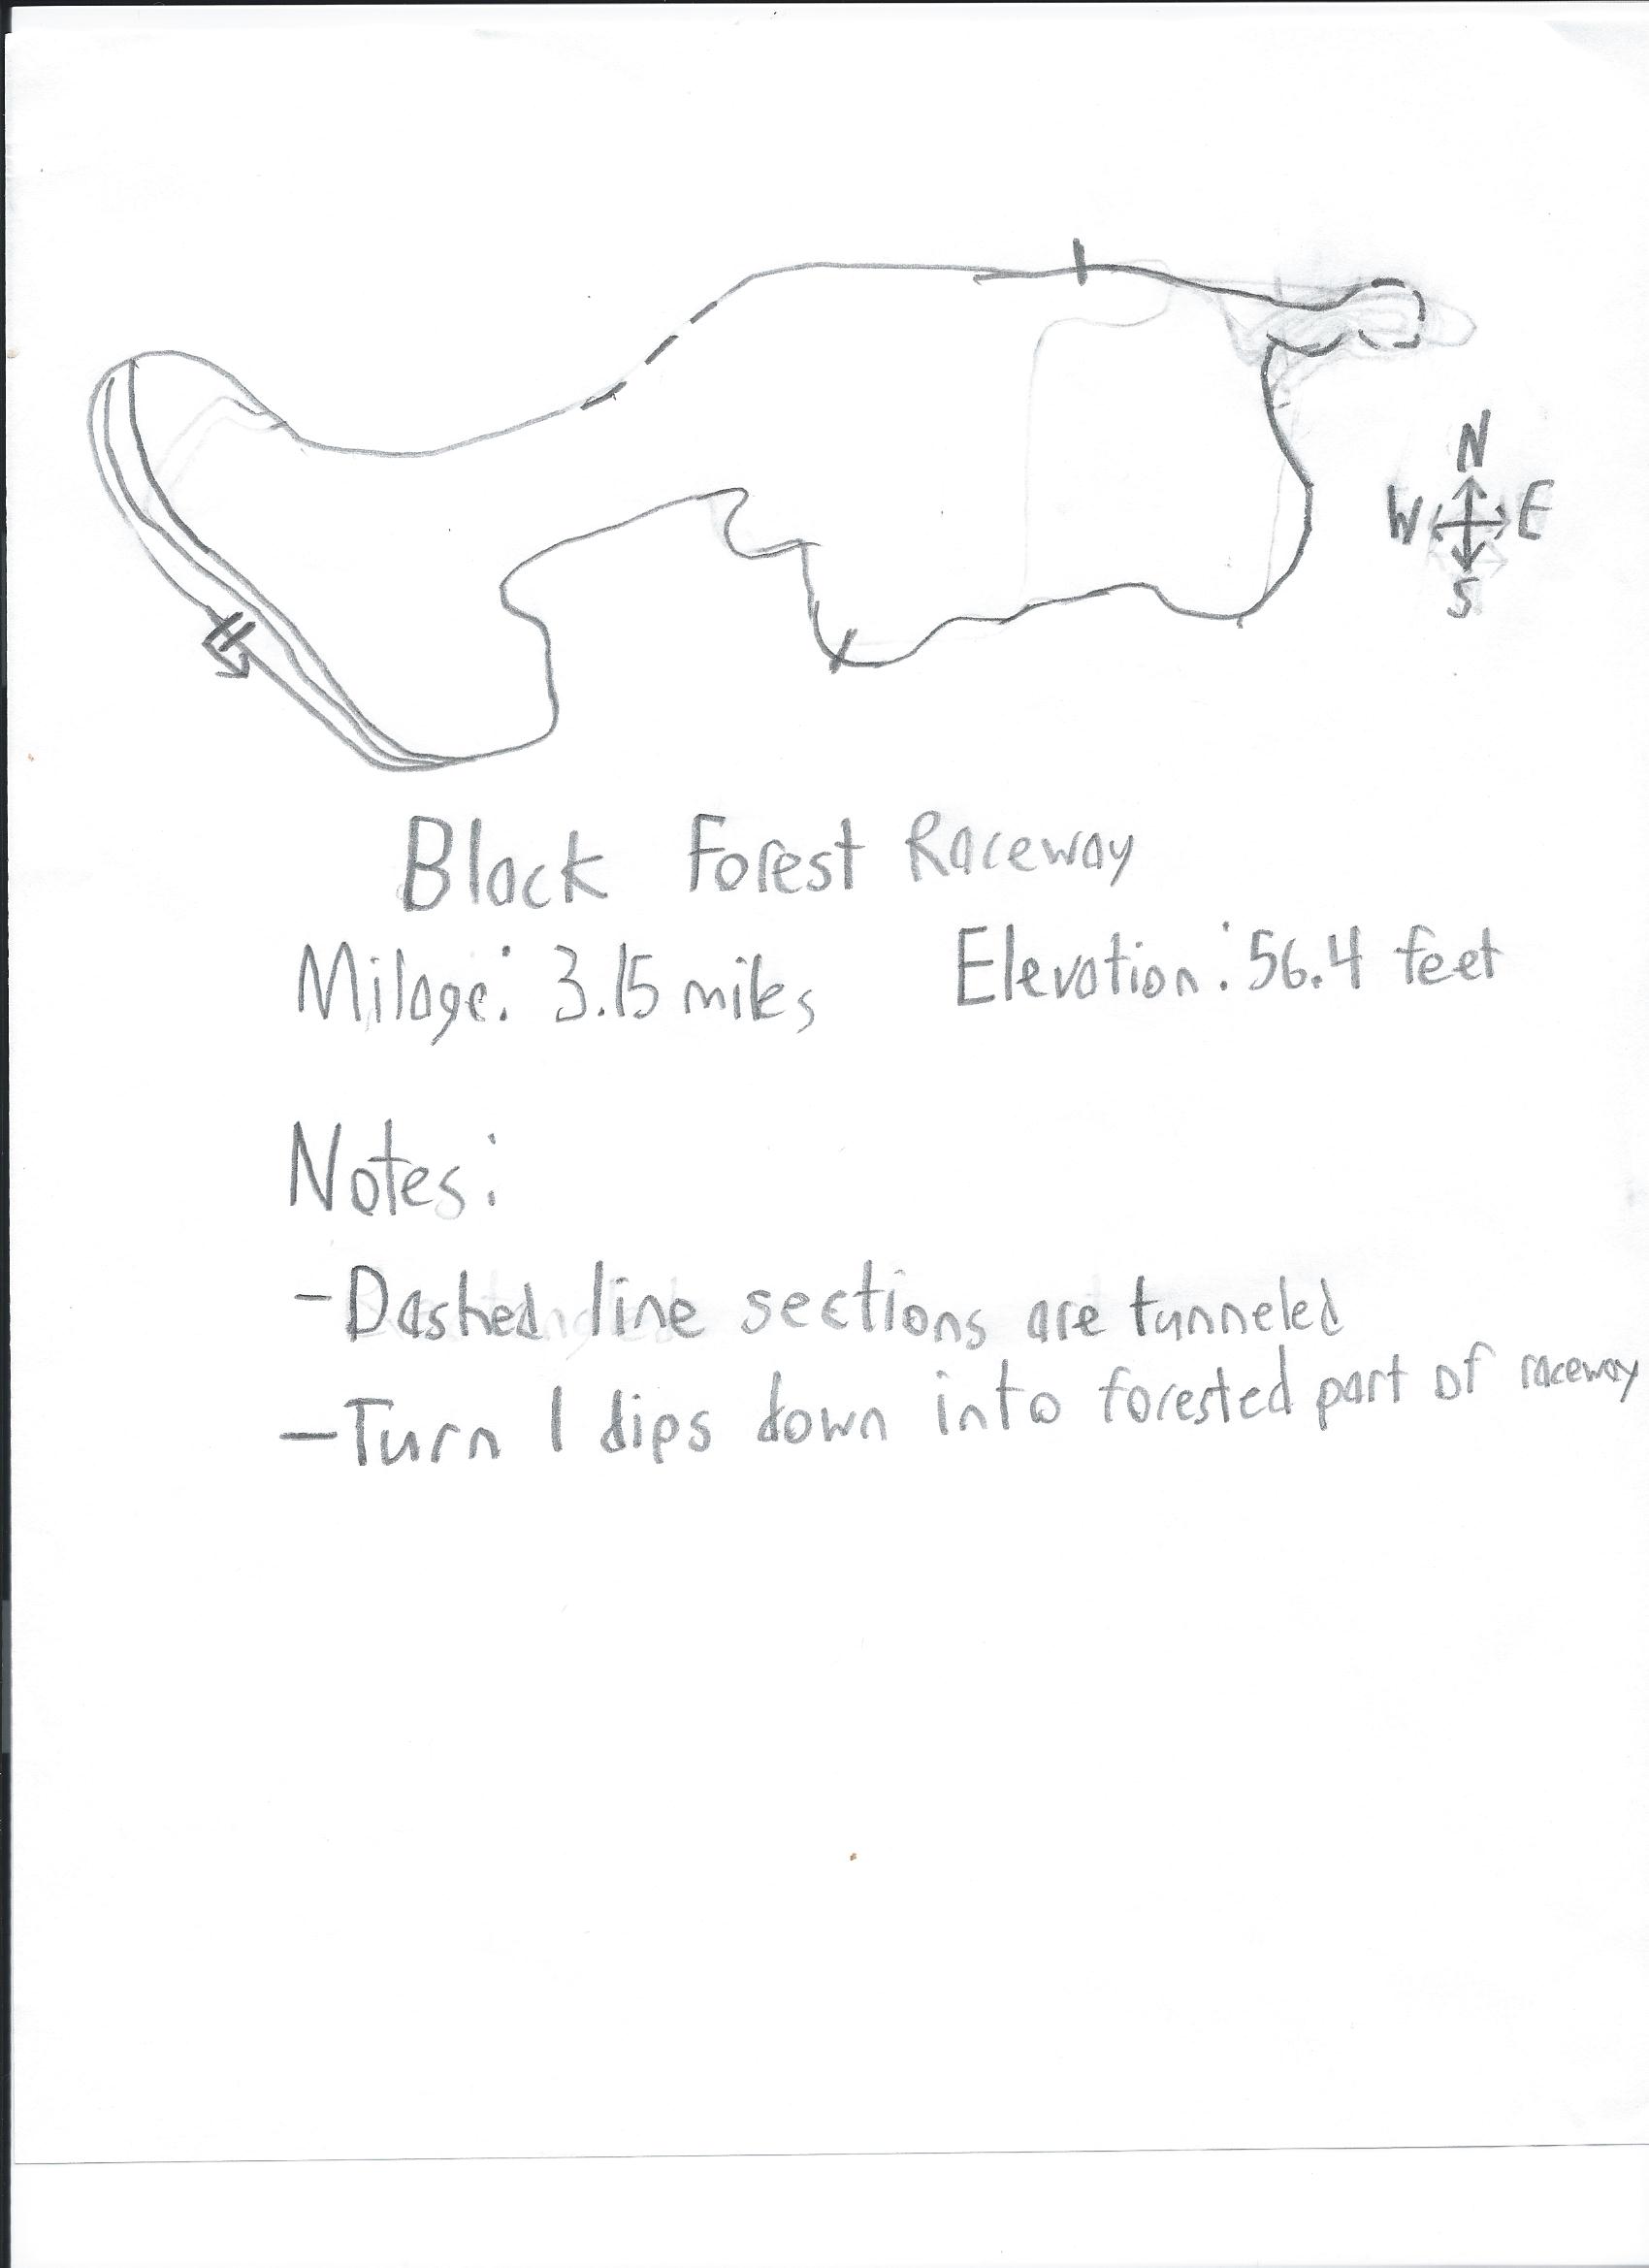 N
W E
S
Black Forest Raceway
Milage: 3.15 miles Elevation: 56.4 feet
Notes:
-Dashed line sections are tunneled
-Turn 1 dips down into forested part of raceway